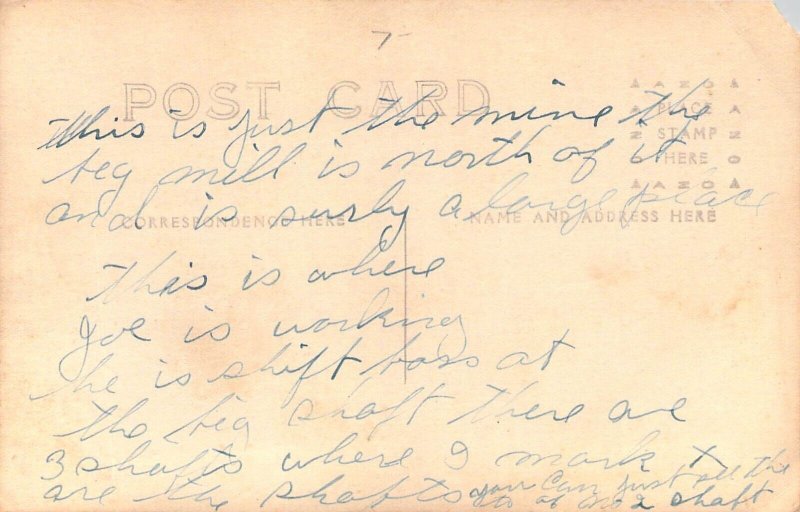 7
POST CARD
AZO
PLACE
STAMP
HERE
AZO
this is just the mine the
beg mill is north of it
and is surly a large place
CORRESPONDENCE HERE
NAME AND ADDRESS HERE
this is where
Joe is working
he is shift boss at
the big shaft there are
3 shafts where I mark X
are the shafts you can just see the
of No 2 shaft